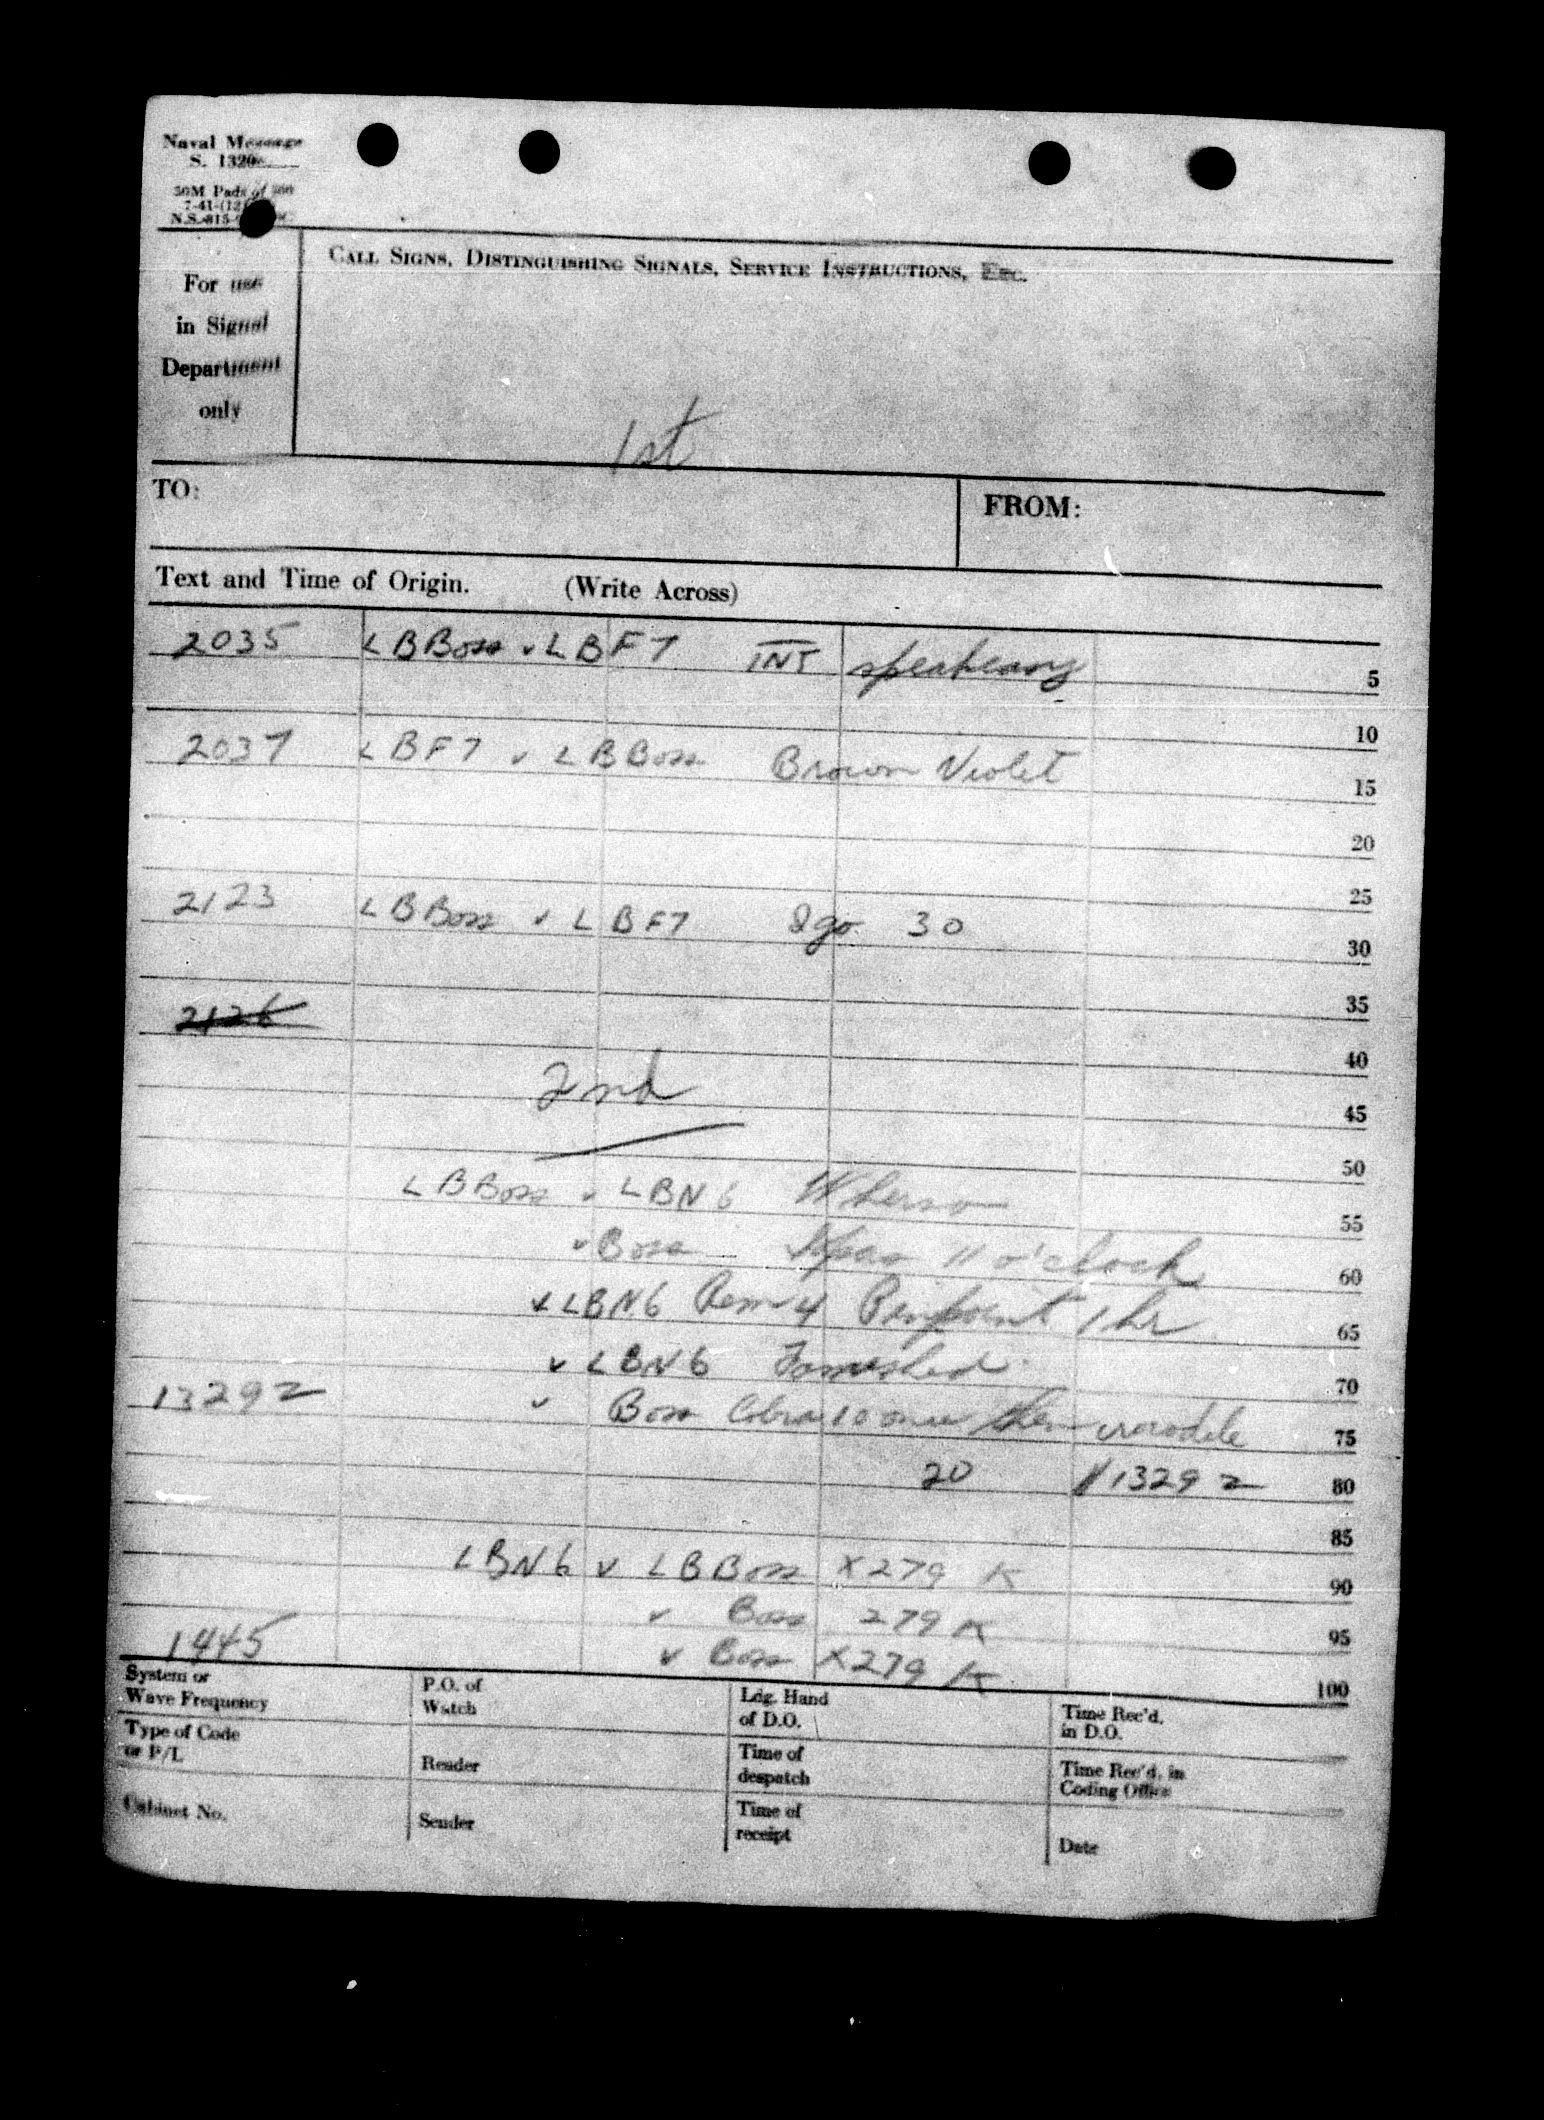 Naval Message
S. 1320
50M Pads of 100
7-41-(12
N.S.-815-
CALL SIGNS, DISTINGUISHING SIGNALS, SERVICE INSTRUCTIONS, ETC.
For use
in Signal
Department
only
1st
TO:
FROM:
Text and Time of Origin. (Write Across)
2035 LBBoss v LBF7 INT speakeasy
5
10
2037 LBF7 v LBBoss Brown Violet
15
20
25
2123 LBBoss v LBF7 30
30
35
2126
40
2nd
45
50
LBBoss v LBN6 Wherso
55
v Boss 11 o'clock
60
v LBN6 Rem 4 Pinpoint 1 hr
65
v LBN6 Famished
70
1329 2 v Boss Cobra 10 once then crocodile
75
20 1329 2
80
85
LBN6 v LBBoss X279 K
90
v Boss 279 K
95
1445 v Boss X279 K
100
System or
Wave Frequency
P.O. of
Watch
Ldg. Hand
of D.O.
Time Rec'd.
in D.O.
Type of Code
or P/L
Reader
Time of
despatch
Time Rec'd. in
Coding Office
Cabinet No.
Sender
Time of
receipt
Date